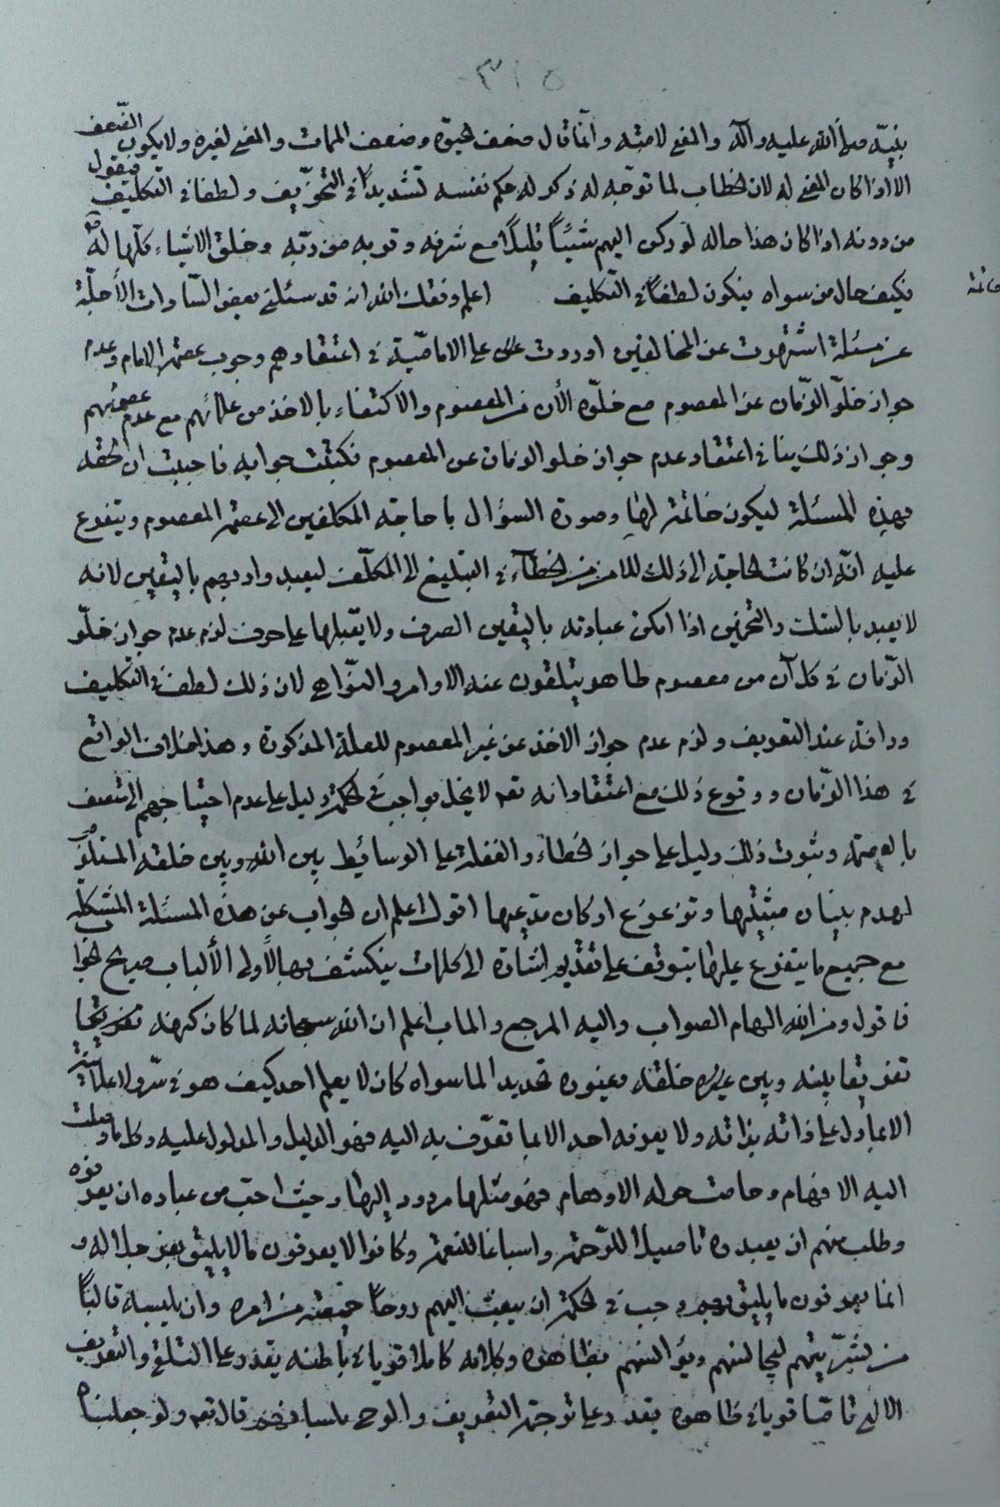 ٣١٥
بنبيّه صلى الله عليه وآله والمعنى لامته وانّما قال ضعف الحيوة وضعف الممات والمعنى لغيره ولا يكون الضّعف
الا اذا كان المعنى له لان الخطاب لما توجّه له ذكر له حكم نفسه تشديداً في التخويف ولطفا في التكليف فيقول
من دونه اذا كان هذا حاله لو ركن اليهم شيئاً قليلاً مع شرفه وقربه من ربّه وخلق الاشياء كلّها له
فكيف حال من سواه فيكون لطفاً في التكليف اعلم وفقك الله انه قد سئلني بعض السّاوات الأجلّة
خاتمة
عن مسئلة اشتهرت عن المخالفين اوردت على الاماميّة في اعتقادهم وجوب عصمة الامام وعدم
جواز خلّو الزّمان عن المعصوم مع خلّوه الأن من المعصوم والاكتفاء بالاخذ من علمائهم مع عدم عصمتهم
وجواز ذلك ينافي اعتقاد عدم جواز خلو الزمان عن المعصوم فكتبت جوابه فاحببت ان الحقه
بهذه المسئلة ليكون خاتمة لها وصورة السؤال ما حاجة المكلفين الى عصمة المعصوم ويتفرع
عليه انّه ان كانت الحاجة الى ذلك للامن من الخطآء في التبليغ الى المكلّف ليعبد وا ربهم باليقين لانه
لا يعبد بالشك والتخمين اذا امكن عبادته باليقين الصرف ولا يقبلها على حرف لزم عدم جواز خلّو
الزّمان في كل آن من معصوم ظاهر يتلقون عنه الاوامر والنّواهى لان ذلك لطف في التكليف
ورافة عند التعريف ولزم عدم جواز الاخذ عن غير المعصوم للعلة المذكورة وهذا خلاف الواقع
في هذا الزّمان ووقوع ذلك مع اعتقاد انه تعم لا يخل بواجب في الحكمة دليل على عدم احتياجهم الى متصف
بالعصمة وثبوت ذلك دليل على جواز الخطاء والغفلة على الوسائط بين الله وبين خلقه المستلزم
لهدم بنيان مثبتها وتزعزع اركان مدعيها اقول اعلم ان الجواب عن هذه المسئلة المشكلة
مع جميع ما يتفرع عليها يتوقف على تقديم اشارة الى كلمات ينكشف بها لأولى الألباب صريح الجواب
فاقول ومن الله الهام الصواب واليه المرجع والماب اعلم ان الله سبحانه لما كان كنهه
تفريقا بينه وبين خلقه وغيوره تحديدا لما سواه كان لا يعلم احد كيف هو في سرّ ولا علانية
الا بما دل على ذاته بذاته ولا يعرفه احد الا بما تعرّف به اليه فهو الدليل والمدلول عليه وكلما وصلت
اليه الافهام وحامت حوله الاوهام فهو مثلها مردود اليها وحيث احب من عباده ان يعرفوه
وطلب منهم ان يعبدوه تاصيلا للرّحمة واسباغا للنعمة وكانوا لا يعرفون ما لا يليق بعز جلاله و
انما يعرفون ما يليق بهم وجب في الحكمة ان يبعث اليهم روحاً من امره وان يلبسه قالباً
من بشريّتهم ليجالسهم ويؤانسهم بظاهره وكلامه كاملا قويا في باطنه يقدر على التلقى والتعريف
الالهى قويا في ظاهره يقدر على ترجمة التعريف والوحى بلسان قال تعم ولو جعلناه